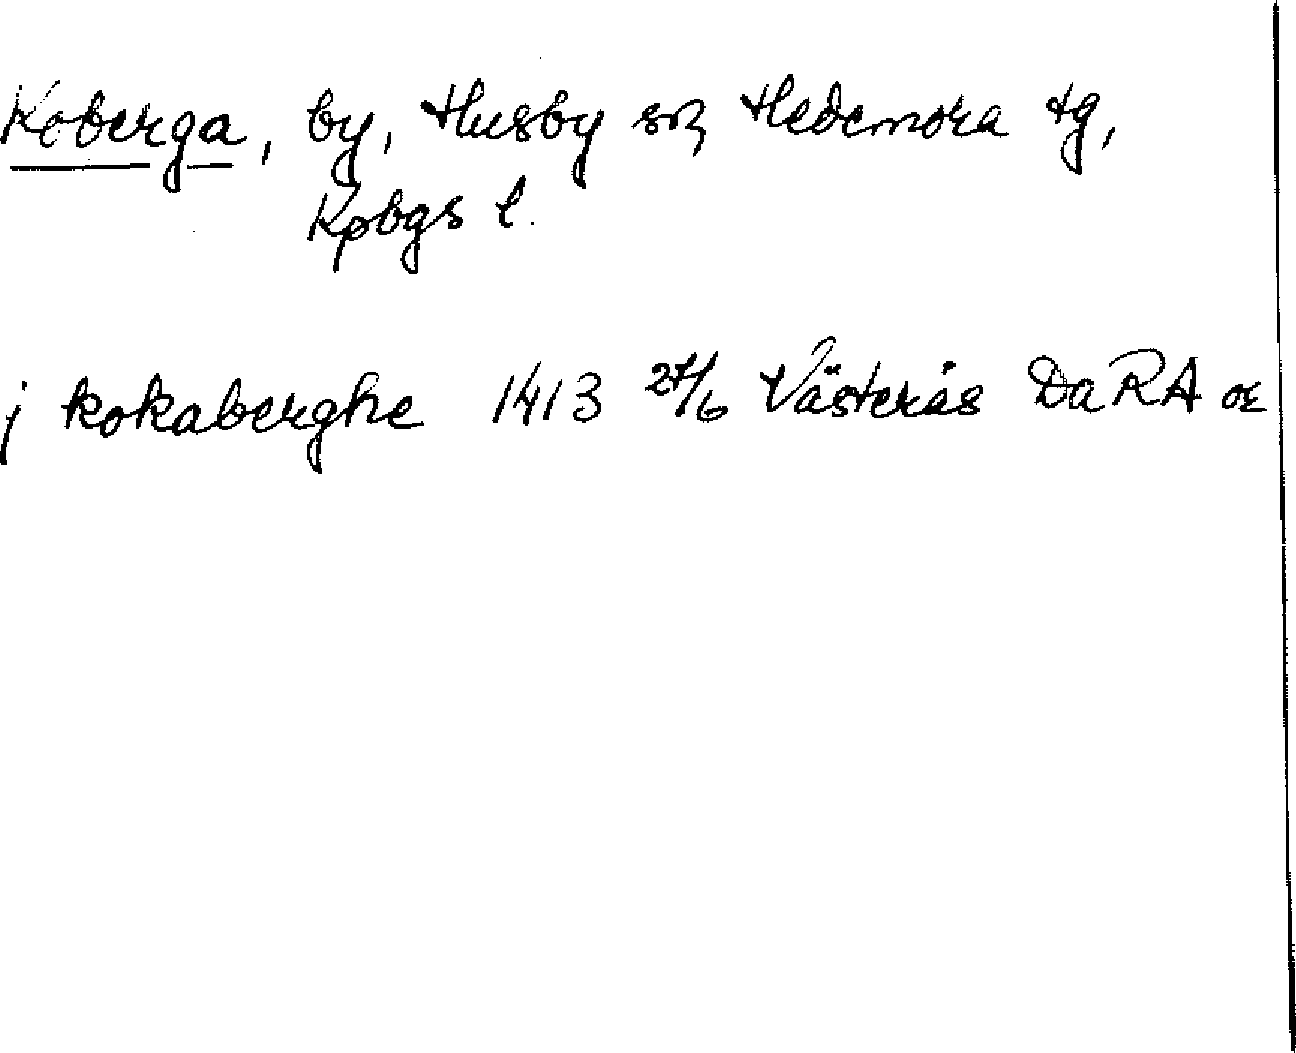 Koberga, by, Husby sn, Hedemora tg,
Kpbgs l.
j kokaberghe 1413 27/6 Västerås Da RA or